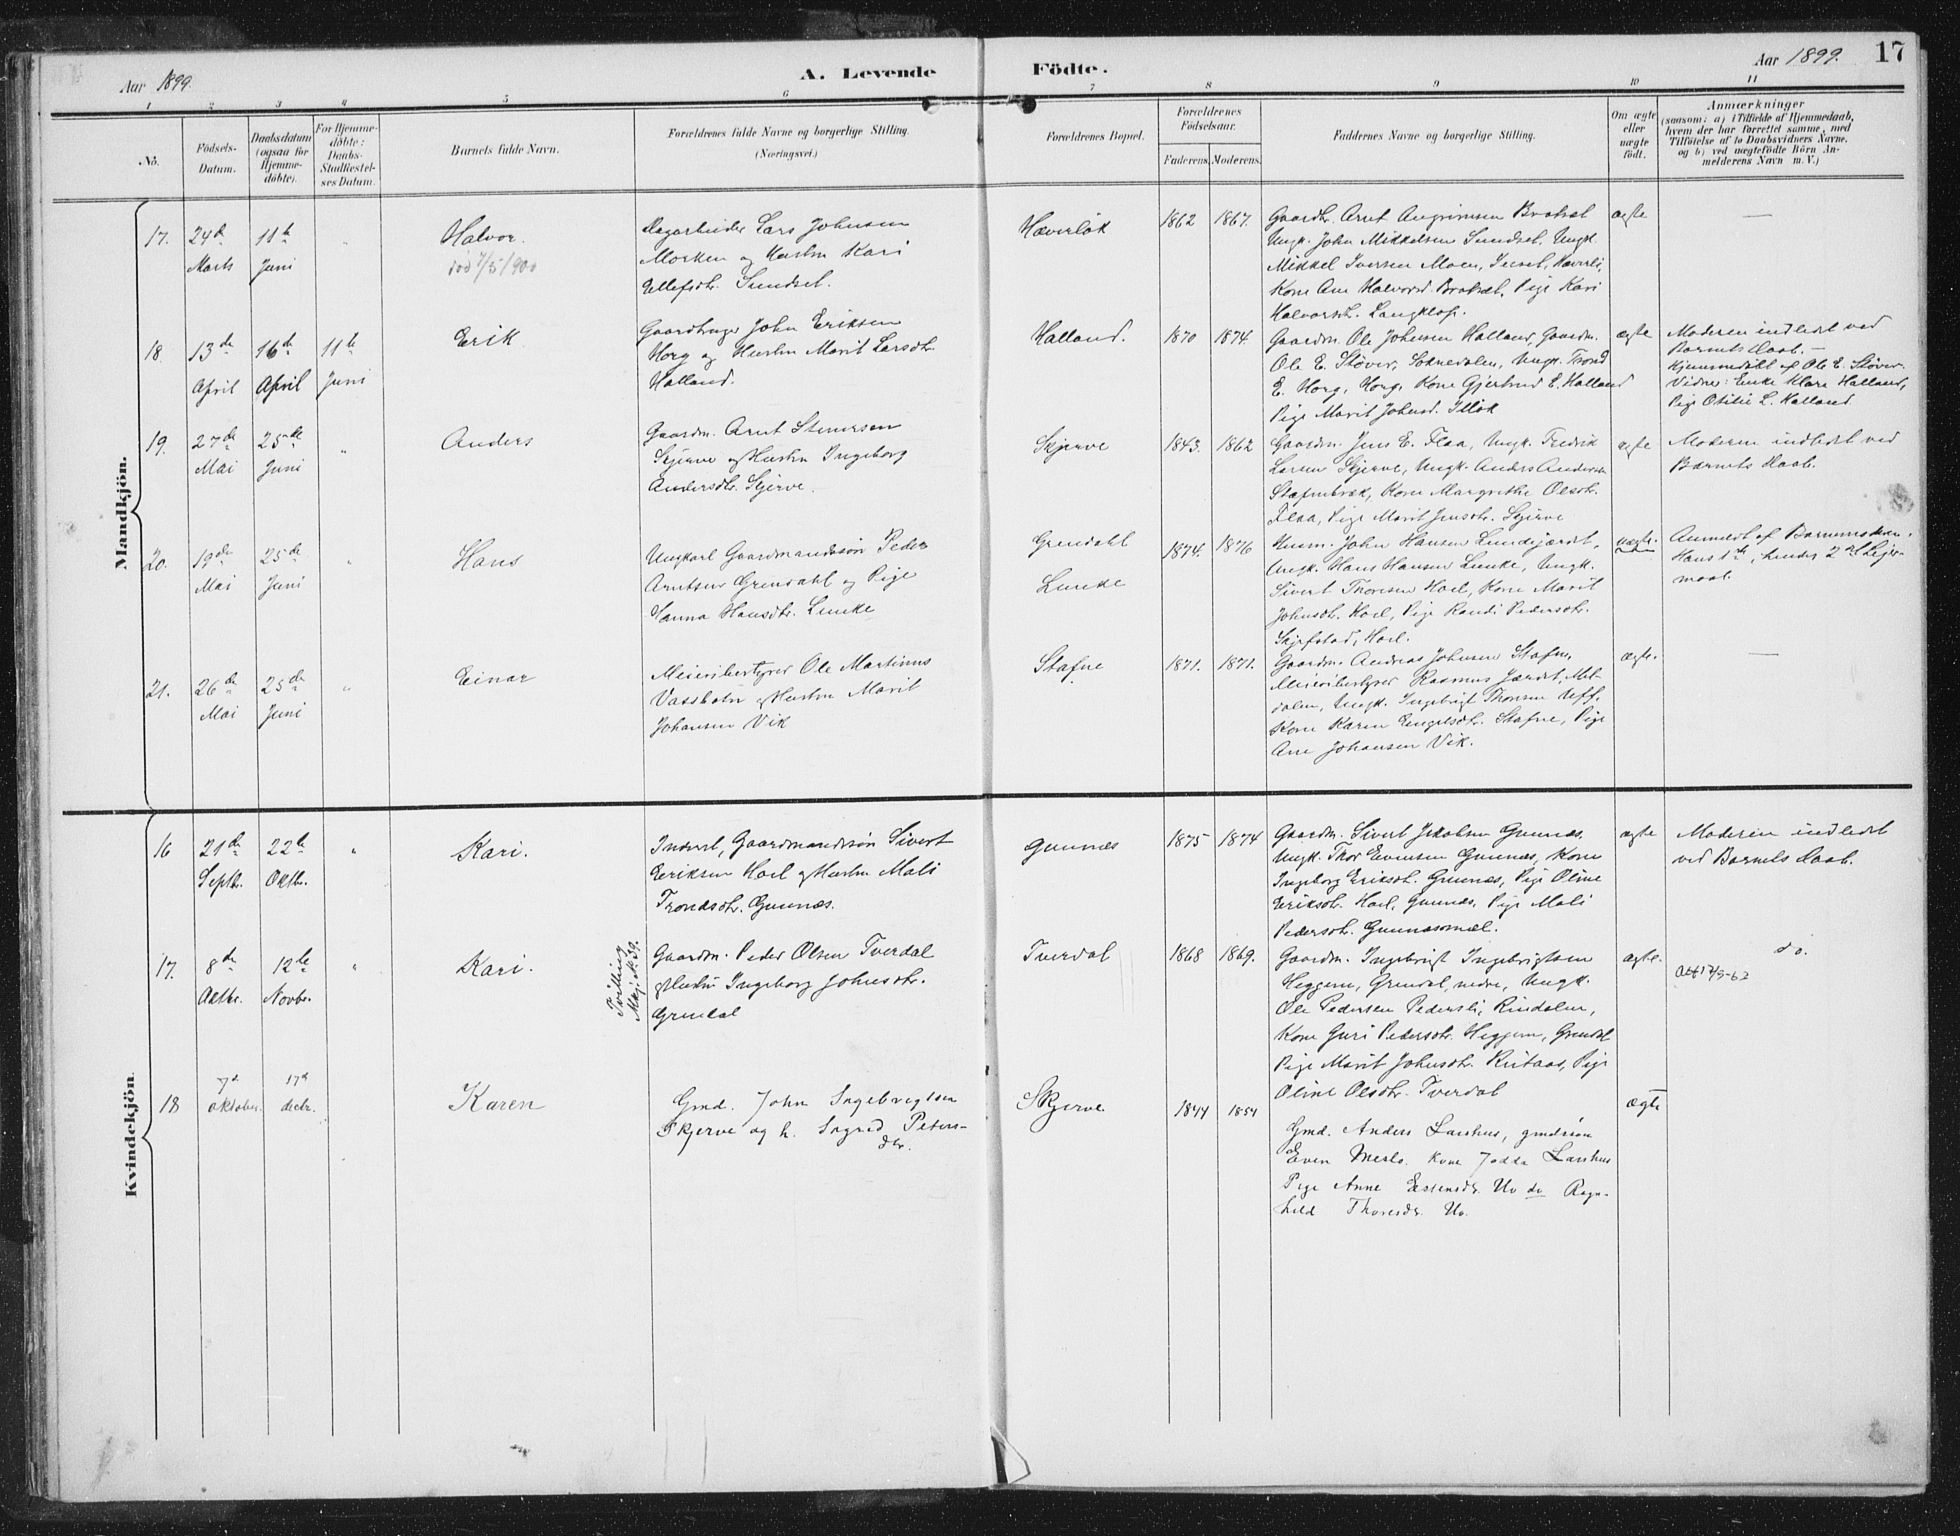 Aar 1899.
A. Levende Födte.
Aar 1899.
17
1 2 3 4 5 6 7 8 9 10 11
No.
Födsels-Datum.
Daabsdatum (ogsaa for Hjemme-döbte).
For Hjemme-döbte: Daabs-Stadfæstel-ses Datum.
Barnets fulde Navn.
Forældrenes fulde Navne og borgerlige Stilling.
(Næringsvei.)
Forældrenes Bopæl.
Forældrenes Födselsaar.
Faderens. Moderens.
Faddernes Navne og borgerlige Stilling.
Om ægte eller uægte födt.
Anmærkninger
(saasom: a) i Tilfælde af Hjemmedaab,
hvem der har forrettet samme, med
Tilföielse af to Daabsvidners Navne.
og b) ved uægtefödte Börn An-
melderens Navn m. V.)
Mandkjön.
17. 24de Marts 11te Juni "
Halvor.
død 7/5/900
Dagarbeider Lars Johnsen
Morken og Hustru Kari
Ellefsdtr. Sundset.
Hæverlök
1862 1867.
Gaardbr. Arnt Angrimsen Brataat
Ungk. John Mikkelsen Sundset, Ungk.
Mikkel Iversen Moen, Hæverli,
Kone Ane Halvorsd. Bratset, Pige Kari
Halvorsdt. Langklop.
ægte
—
18. 13de April 16de April 11te Juni
Erik
Gaardbruger John Eriksen
Horg og Hustru Marit Larsdtr.
Halland.
Halland.
1870 1874
Gaardm. Ole Johnsen Halland, Gaardm.
Ole E. Støver, Soknedalen, Ungk. Trond
E. Horg, Horg, Kone Gjertrud E. Halland
Pige Marit Johnsd. Illök
ægte
Moderen indledet ved
Barnets Daab. —
Hjemmedöbt af Ole E. Støver.
Vidner: Enke Klara Halland,
Pige Otilie L. Halland
19. 27de Mai 25de Juni "
Anders
Gaardm. Arnt Stenersen
Skjerve og Hustru Ingeborg
Andersdtr. Skjerve.
Skjerve
1843. 1862
Gaardm. Jens E. Flaa, Ungk. Fredrik
Larsen Skjerve, Ungk. Anders Andersen
Stafnebræk, Kone Margrethe Olsdtr.
Flaa, Pige Marit Jensdtr. Skjerve
ægte
Moderen indledet ved
Barnets Daab.
20. 19de Mai 25de Juni "
Hans
Ungkarl Gaardmandssøn Peder
Arntsen Grendahl og Pige
Hanna Hansdtr. Lunke
Grendahl
Lunke
1874. 1876
Husm. John Hansen Lundejærdt,
Ungk. Hans Hansen Lunke, Ungk.
Sivert Thoresen Hoel, Kone Marit
Johnsdtr. Hoel, Pige Randi Pedersdtr.
Skjefstad, Hoel.
uægte.
Anmeldt af Barnemoderen.
Hans 1ste, hendes 2det Leier-
maal.
21. 26de Mai 25de Juni "
Einar
Meieribestyrer Ole Martinus
Vassbotn og Hustru Marit
Johansen Vik
Stafne
1871. 1871.
Gaardm. Andreas Johnsen Stafne,
Meieribestyrer Rasmus Jærdt, Mel-
dalen, Ungk. Ingebrigt Thoresen Uff,
Kone Karen Engelsdtr. Stafne, Pige
Ane Johansen Vik.
ægte.
—
Kvindekjön.
16 21de Septbr. 22de Oktbr. "
Kari.
Inderst, Gaardmandssøn Sivert
Eriksen Hoel og Hustru Mali
Trondsdtr. Gunnæs.
Gunnæs
1875 1874
Gaardm. Sivert Jakobsen Gunnæs.
Ungk. Thor Evensen Gunnæs, Kone
Ingeborg Eriksdt. Gunnæs, Pige Oline
Eriksdt. Hoel, Gunnæs, Pige Mali
Pedersdtr. Gunnæsmæl.
ægte
Moderen indledet
ved Barnets Daab.
17. 8de Oktbr. 12te Novbr. "
Kari.
Tvilling
Mkj. № 39.
Gaardm. Peder Olsen Tverdal
og Hustru Ingeborg Johnsdtr.
Grendal
Tverdal
1868 1869.
Gaardm. Ingebrigt Ingebrigtsen
Heggem, Grendal, nedre, Ungk.
Ole Pedersen Pedersli, Rindalen,
Kone Guri Pedersdtr. Heggem, Grendal
Pige Marit Johnsdtr. Risaas, Pige
Oline Olsdtr. Tverdal
ægte.
do.
Att 17/5-62
18 7de oktober. 17de decbr.
Karen
Gmd. John Ingebrigtsen
Skjerve og h. Ingrid Peters-
dtr.
Skjerve
1844 1854
Gmd. Anders Larshus, gmdssøn
Even Merlo. kone Jodda Larshus
Pige Anne Estensdr. Uv do Ragn-
hild Thoresdr. Uv.
ægte